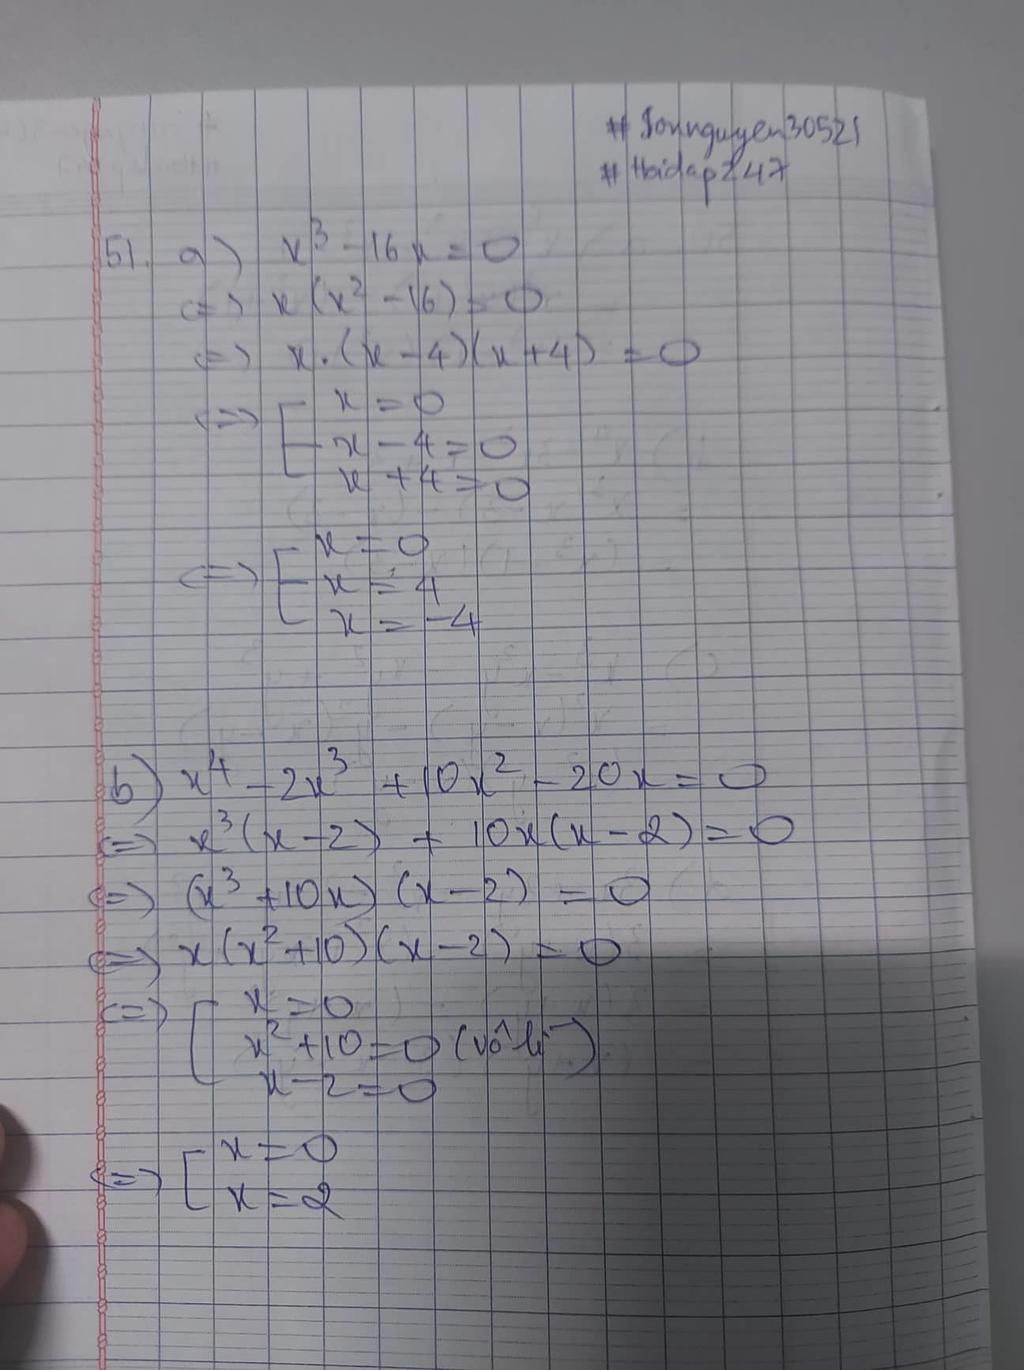 # Sonnguyen30521
# Hoidap247
51. a) x³ - 16x = 0
<=> x(x² - 16) = 0
<=> x.(x - 4)(x + 4) = 0
<=> [ x = 0
x - 4 = 0
x + 4 = 0
<=> [ x = 0
x = 4
x = -4
b) x⁴ - 2x³ + 10x² - 20x = 0
<=> x³(x - 2) + 10x(x - 2) = 0
<=> (x³ + 10x)(x - 2) = 0
<=> x(x² + 10)(x - 2) = 0
<=> [ x = 0
x² + 10 = 0 (vô lí)
x - 2 = 0
<=> [ x = 0
x = 2